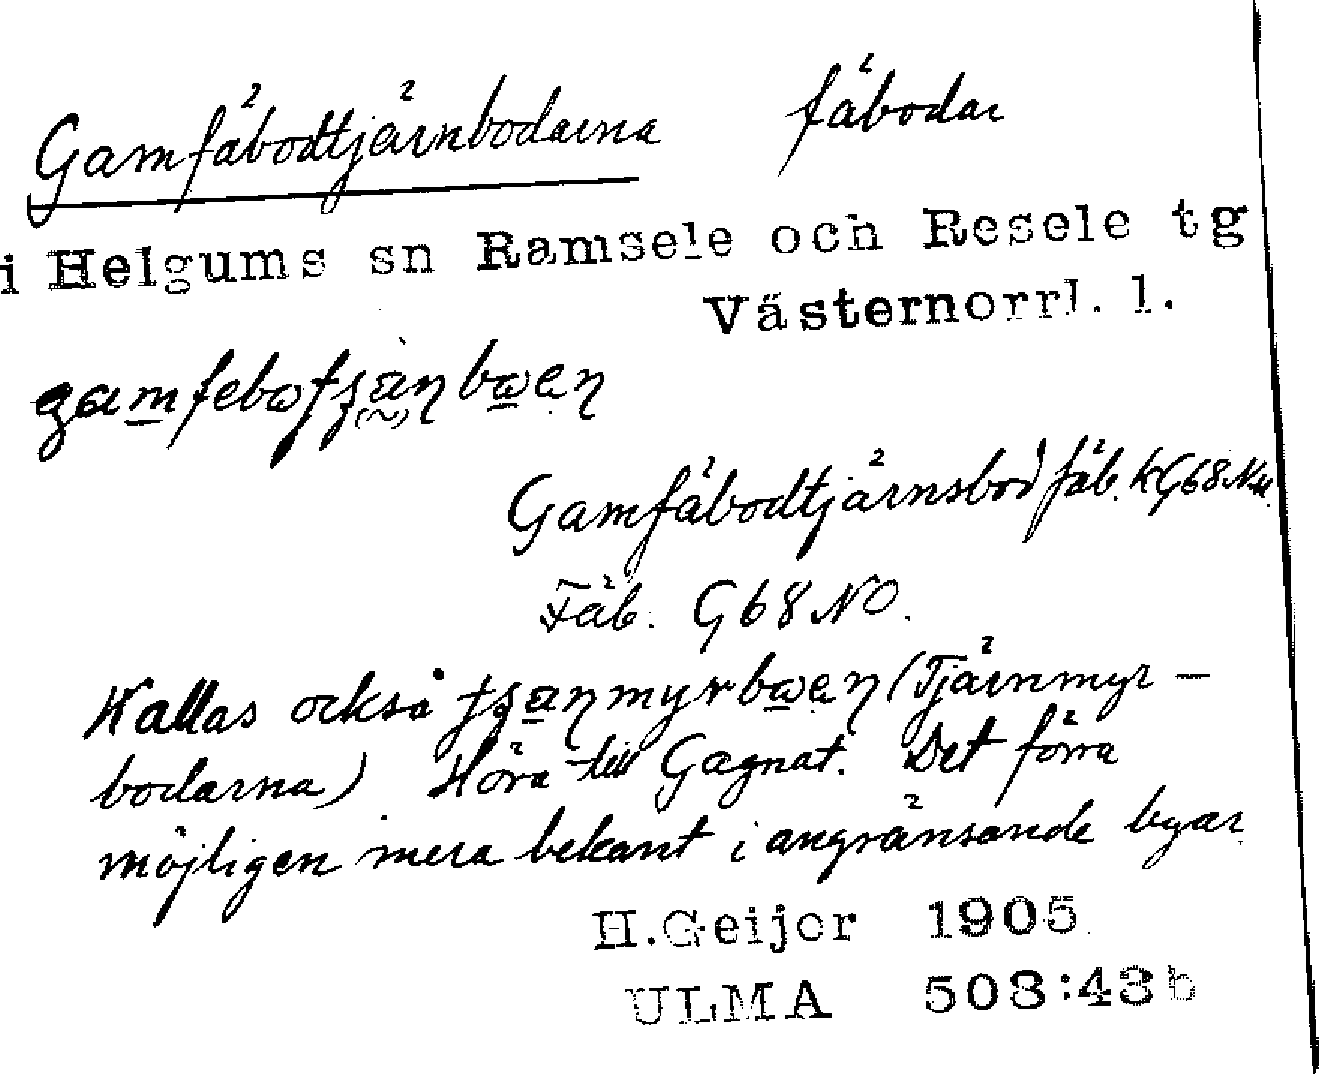 Gamfäbodtjärnbodarna fäbodar
i Helgums sn Ramsele och Resele tg
Västernorrl. l.
Gamfäbodtjärnsbod fäb. k G68
Fäb. G68 NO.
Kallas också (Tjärnmyr-
bodarna) Höra till Gagnat. Det förra
möjligen mera bekant i angränsande byar
H.Geijer 1905
ULMA 508:43b